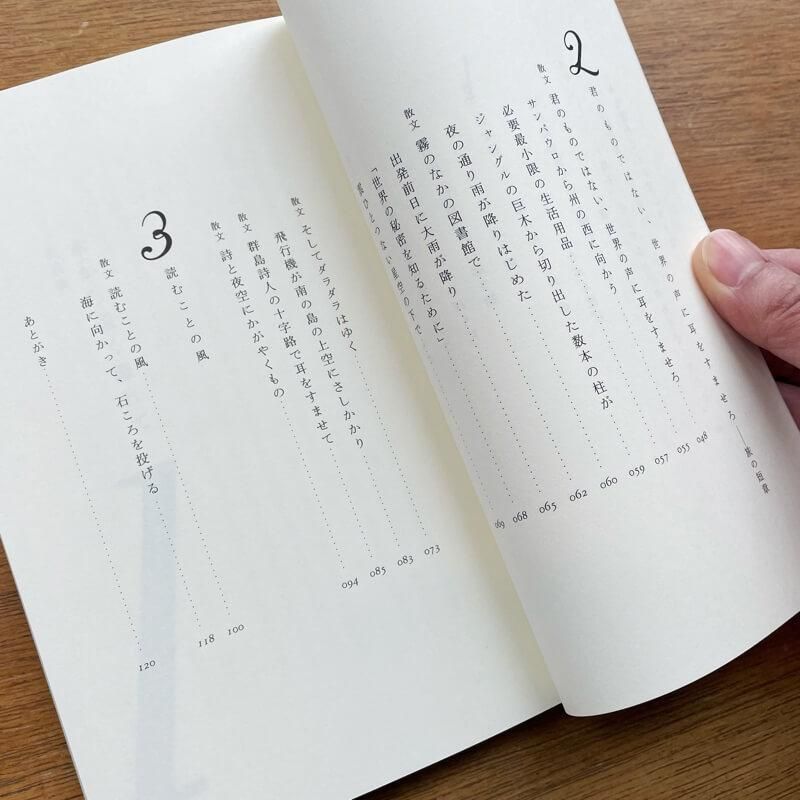 2
君のものではない、世界の声に耳をすませろ——旅の短章
散文 君のものではない、世界の声に耳をすませろ……048
サンパウロから州の西に向かう……055
必要最小限の生活用品……057
ジャングルの巨木から切り出した数本の柱が……059
夜の通り雨が降りはじめた……060
散文 霧のなかの図書館で……062
出発前日に大雨が降り……065
「世界の秘密を知るために」……068
雲ひとつない星空の下で……069
散文 そしてダラダラはゆく……073
飛行機が南の島の上空にさしかかり……083
散文 群島詩人の十字路で耳をすませて……085
散文 詩と夜空にかがやくもの……094
3
読むことの風
散文 読むことの風……100
海に向かって、石ころを投げる……118
あとがき……120